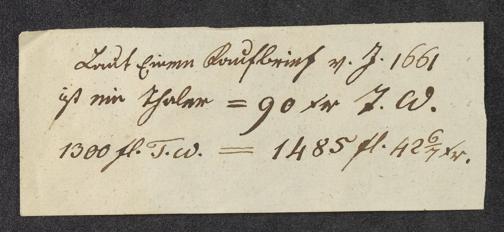 Laut Einem Kaufbrief v. J. 1661
ist ein Thaler = 90 Xr T. W.
1300 fl. T. W. = 1485 fl. 42 6/7 Xr.